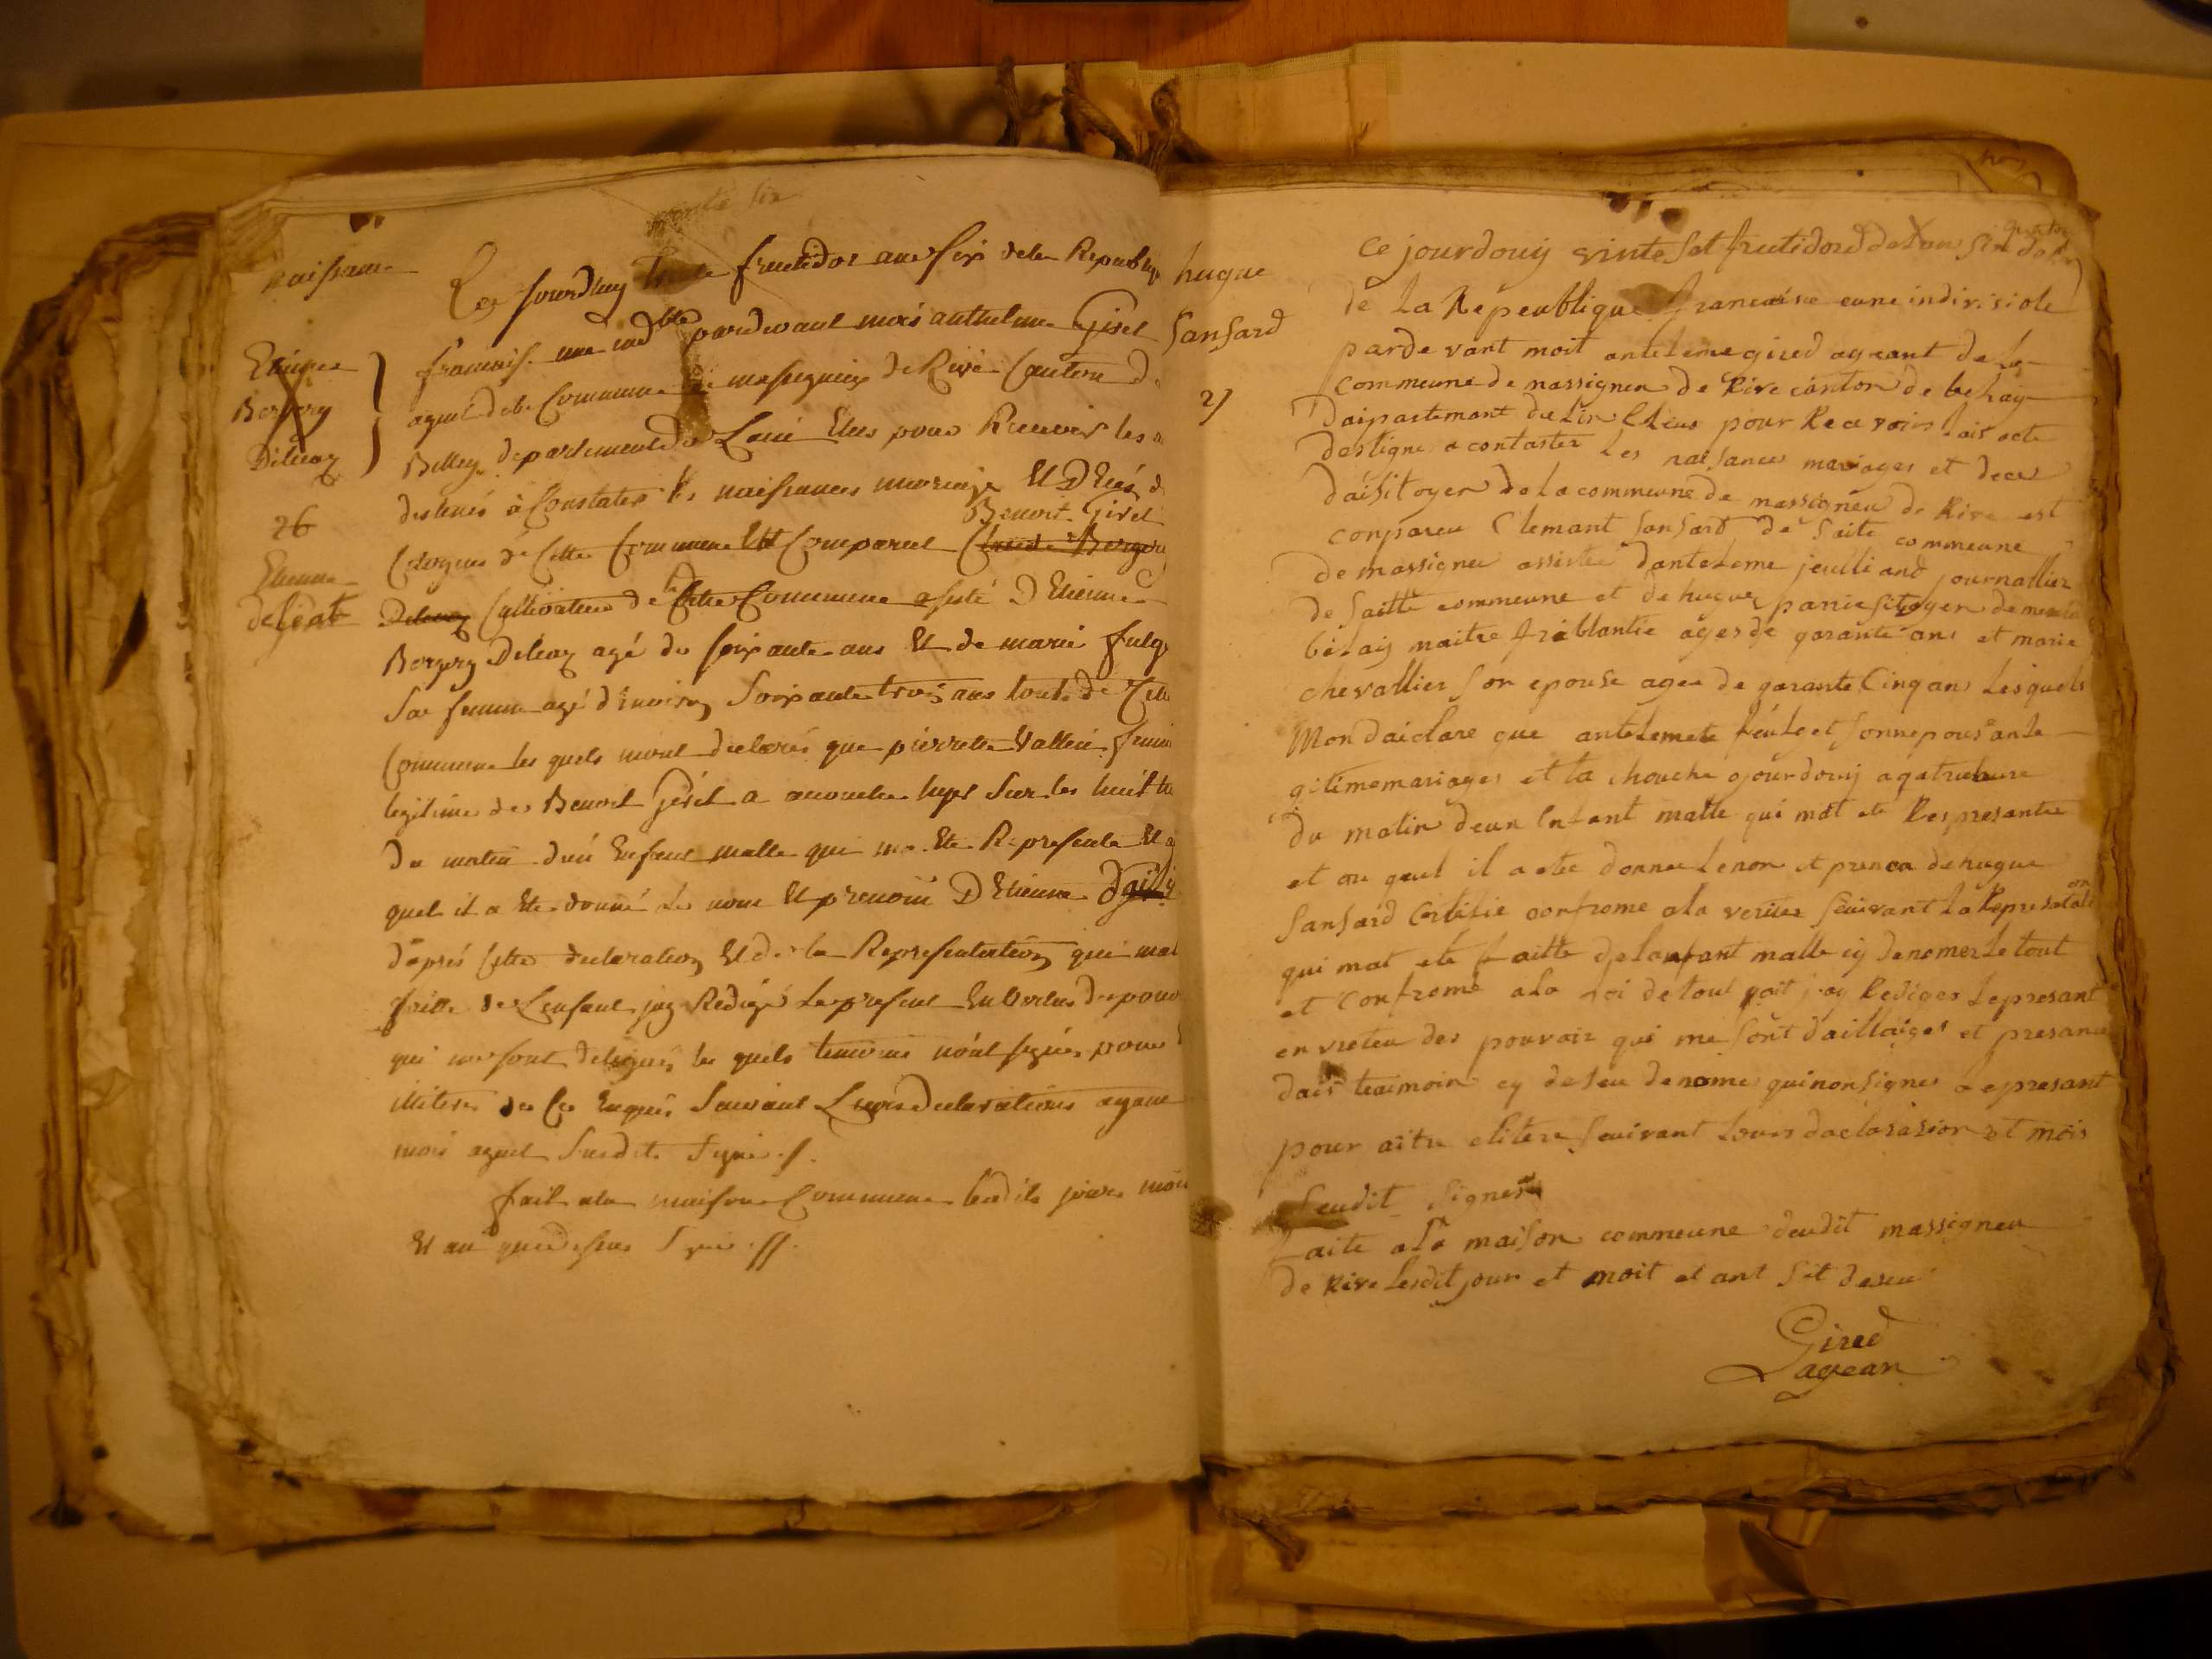 naissance
Etienne
Bergery
Deleaz
26
Etienne
Ce jourdhuy fructidor ane six de la Republiq
francais. une ind ble pardevant moi anthelme Girel
agent de la Commune de massignieu de Rive Canton d
Belley departement de Lain Eleu pour Recevoir les a
destinés à Constater les naissances mariage Et Decés d
Benoit Girel
Citoyens de Cette Commune Est Comparut Claude Berger
Deleaz Cultivateur de Cette Commune assisté D Etienne
Bergery Deleaz agé de soixante ans Et de marie fulg
Sa femme agé d'environ Soixante trois ans touts de Cette
Commune les quels mont declarés que pierrette Vallin femme
legitime de Benoit Girel a accouchee hyer Sur les huit
du matin d'un Enfant malle qui ma Ete Represente Et a
quel il a Ete donné Le nom Et prenom D Etienne
d'aprés Cette declaration Et de la Representation qui mat
faitte de L'enfant jay Redigé Le present En Vertus de pouv
qui me sont delegués les quels temoins n'ont signés pour
illiteres de Ce Enquis Suivant Leurs declarations ayant
moi agent Susdit Signé ./.
fait a la maison Commune lesdits jours mois
Et an que dessus Signé .//.
hugue
Sansard
27
Ce jourdouij vinte set frutidord de lan
de La Repeublique francaise eune indivisiole
parde vant moit anteleme gired ageant de la
commeune de massigneu de Rive canton de belay
daipartemant du Lin Elieus pour Recevoir lais acte
destigne a contaster Les naisances mariages et deces
daisitoyen de la commeune de massigneu de Rive est
conpareu Clemant Sansard de Saite commeune
de massigneu assistee danteleme jeulliand journallier
de Saitte commeune et de hugue panie sitoyen de
belay maitre friblantie ages de garante ans et marie
chevallier son epouse agee de garante Cinq ans Lesquels
Mon daiclare que antelemete feulg et sonnepousanle
gitimemariages et ta chouche ojourdouij a gatreheure
du matin deun Enfant malle qui mat ete Respresantee
et au quel il a etee donnee Lenon et prenon dehugue
Sansard Certifie confrome ala veritee seuivant la Represatation
qui mat ete faitte de lanfant malle cy denomer Le tout
et Confrome ala loi de tout qoit jay Rediger Lepresant
en vreteu des pouvoir qui me sont daillaiges et presance
dais teaimoin cy deseu denome quinonsigner Lepresant
pour aitre elitere seuivant Leurs daclarasion et mois
seudit signer
Faite ala maison commeune deudit massigneu
de Rive Lesdit jour et moit et ant sit deseu
Gired
ageant